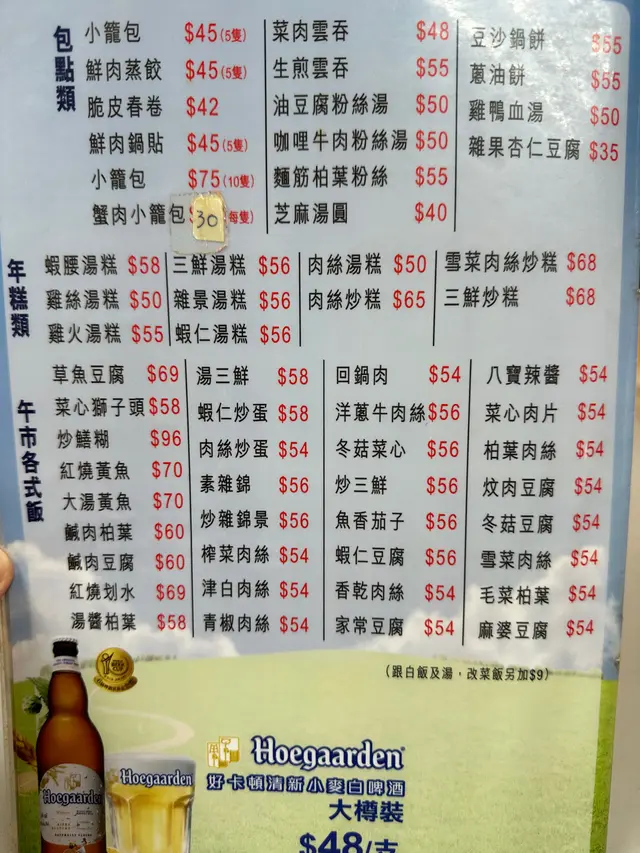 包點類
小籠包 $45(5隻)
鮮肉蒸餃 $45(5隻)
脆皮春卷 $42
鮮肉鍋貼 $45(5隻)
小籠包 $75(10隻)
蟹肉小籠包 30 (每隻)
菜肉雲吞 $48
生煎雲吞 $55
油豆腐粉絲湯 $50
咖哩牛肉粉絲湯 $50
麵筋柏葉粉絲 $55
芝麻湯圓 $40
豆沙鍋餅 $55
蔥油餅 $55
雞鴨血湯 $50
雜果杏仁豆腐 $35
年糕類
蝦腰湯糕 $58
雞絲湯糕 $50
雞火湯糕 $55
三鮮湯糕 $56
雜景湯糕 $56
蝦仁湯糕 $56
肉絲湯糕 $50
肉絲炒糕 $65
雪菜肉絲炒糕 $68
三鮮炒糕 $68
午市各式飯
草魚豆腐 $69
菜心獅子頭 $58
炒鱔糊 $96
紅燒黃魚 $70
大湯黃魚 $70
鹹肉柏葉 $60
鹹肉豆腐 $60
紅燒划水 $69
湯醬柏葉 $58
湯三鮮 $58
蝦仁炒蛋 $58
肉絲炒蛋 $54
素雜錦 $56
炒雜錦景 $56
榨菜肉絲 $54
津白肉絲 $54
青椒肉絲 $54
回鍋肉 $54
洋蔥牛肉絲 $56
冬菇菜心 $56
炒三鮮 $56
魚香茄子 $56
蝦仁豆腐 $56
香乾肉絲 $54
家常豆腐 $54
八寶辣醬 $54
菜心肉片 $54
柏葉肉絲 $54
炆肉豆腐 $54
冬菇豆腐 $54
雪菜肉絲 $54
毛菜柏葉 $54
麻婆豆腐 $54
(跟白飯及湯，改菜飯另加$9)
Hoegaarden
Hoegaarden
Hoegaarden
好卡頓清新小麥白啤酒
大樽裝
$48/支